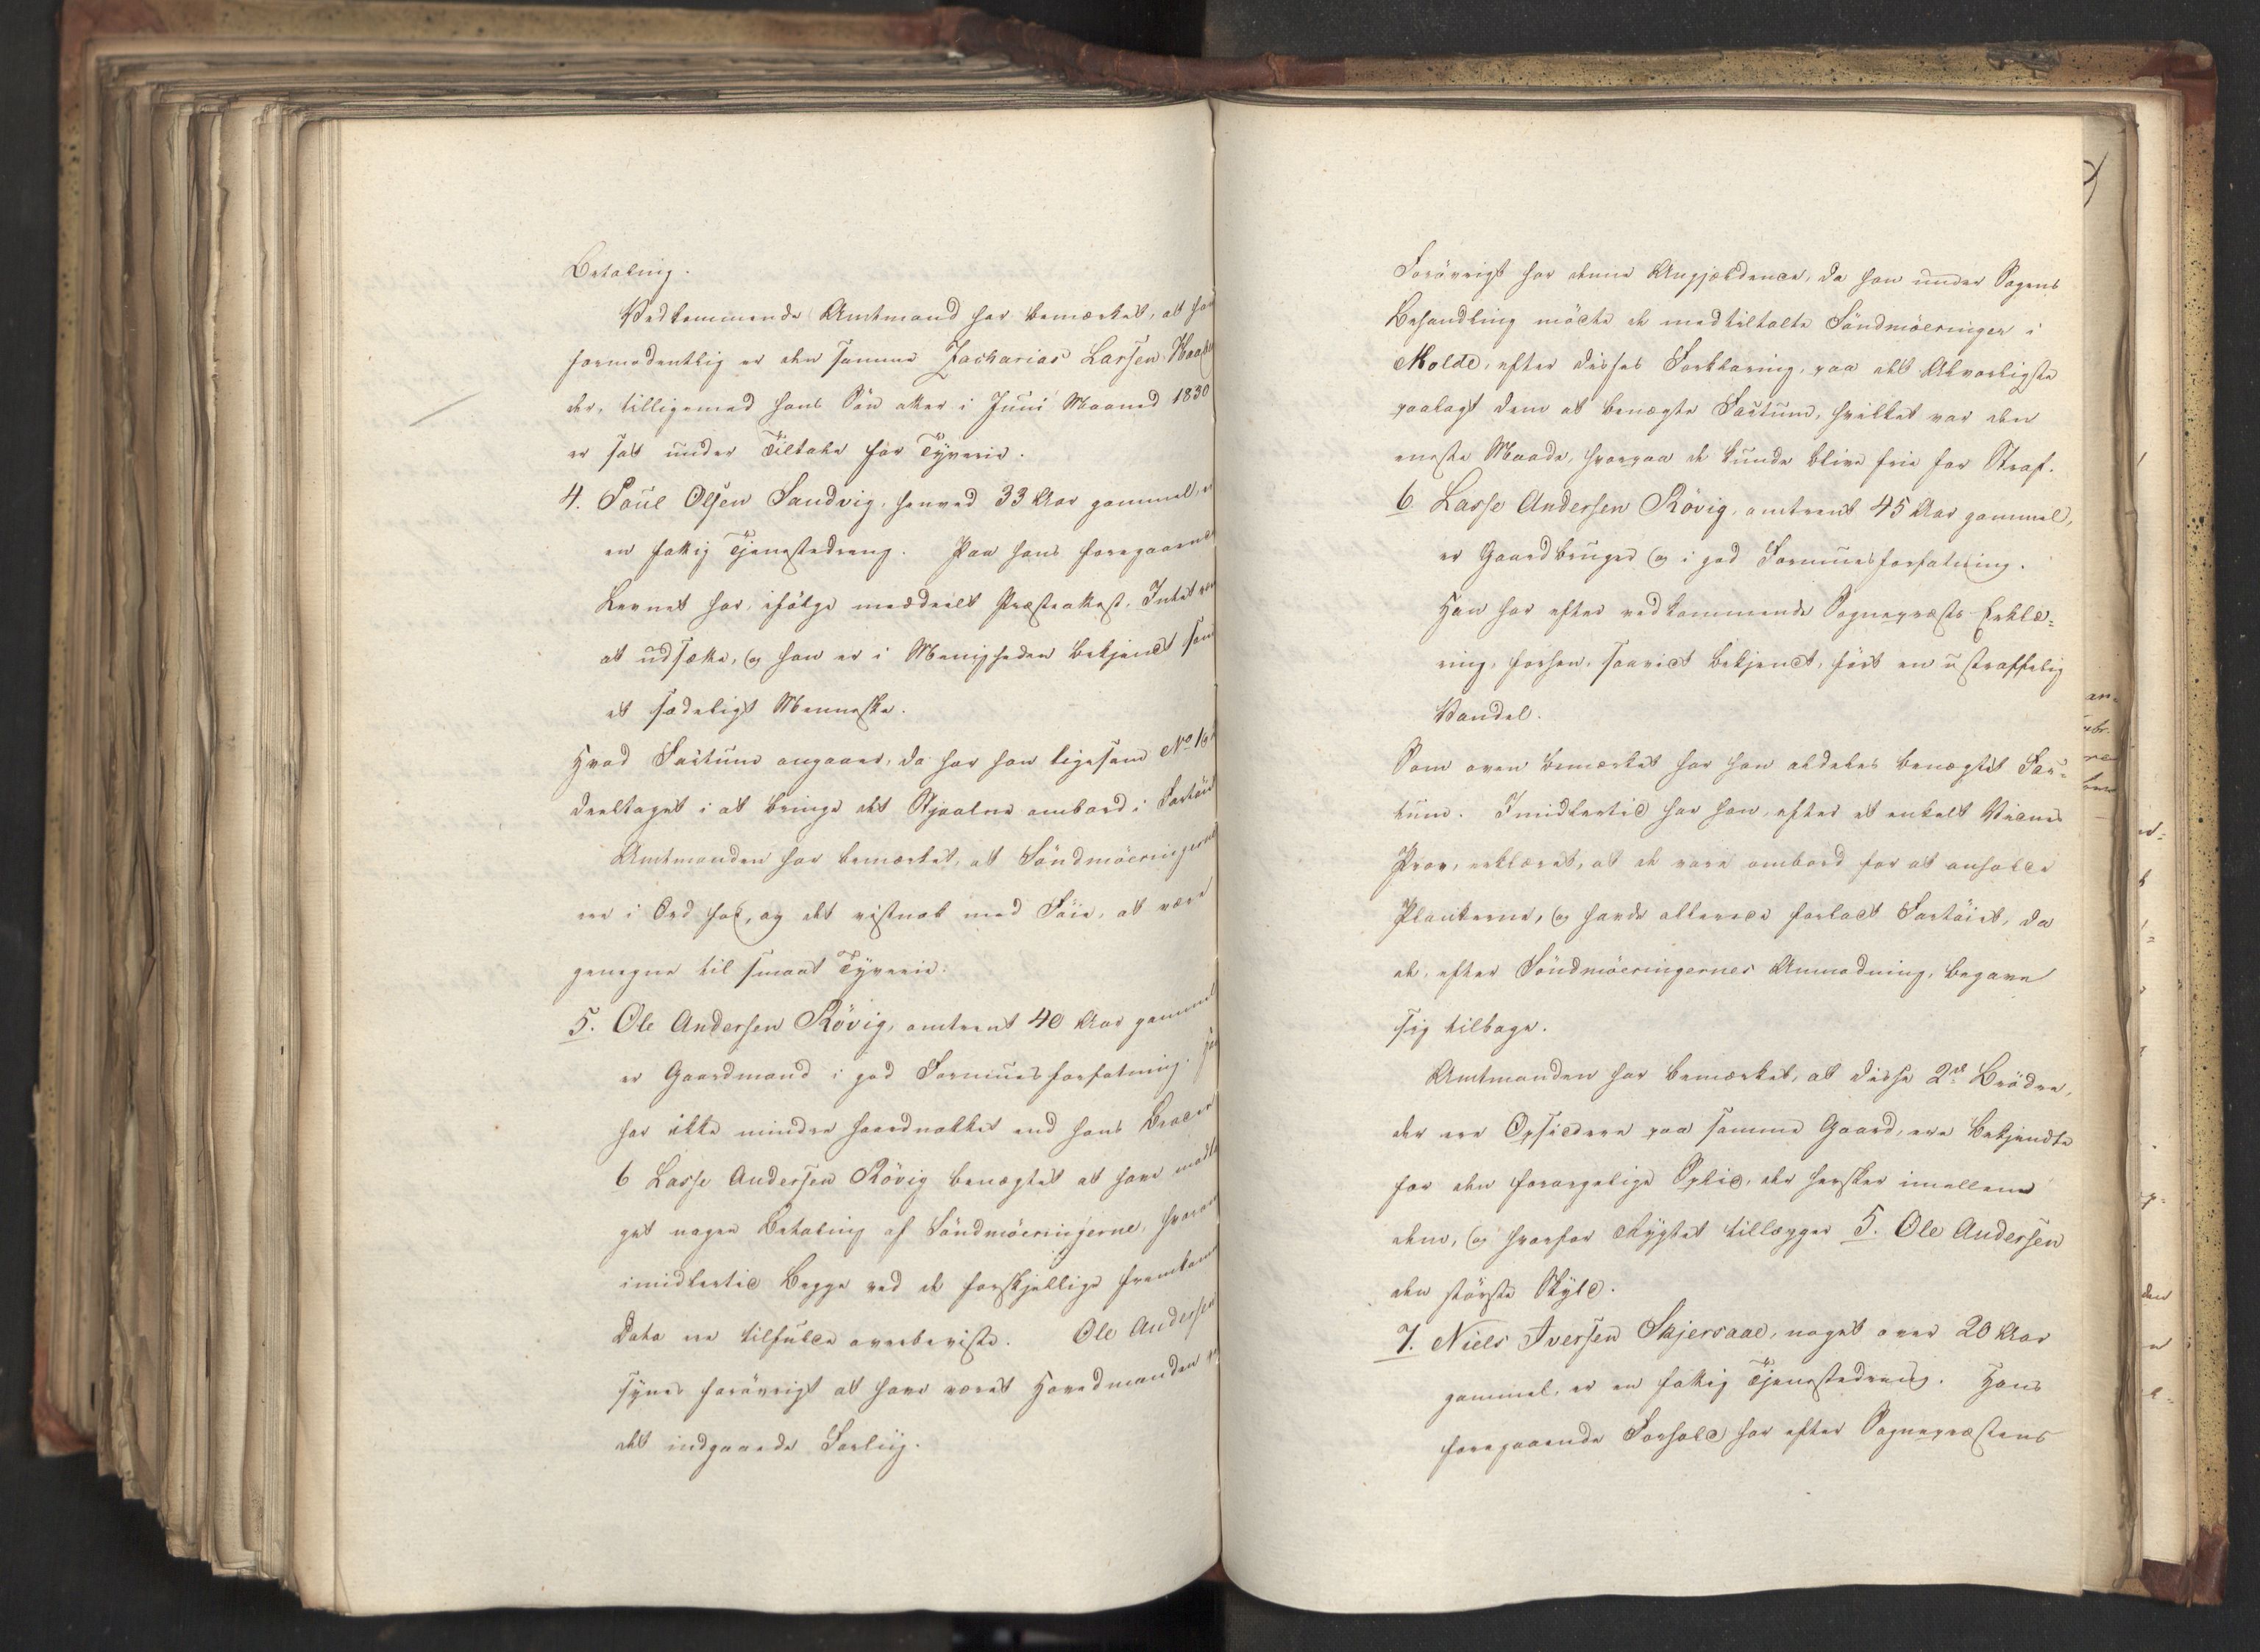 Betaling.
Vedkommende Amtmand har bemærket, at han
formodentlig er den samme Zacharias Larsen
der, tilligemed hans Sön atter i Juni Maaned 1830
er sat under Tiltale for Tyverie.
4. Poul Olsen Sandvig, henved 33 Aar gammel, er
en fattig Tjenestedreng. Paa hans foregaaende
Levnet har, ifölge meddeelt Præsteattest, Intet været
at udsætte, og han er i Menigheden bekjendt som
et sædeligt Menneske.
Hvad Factum angaaer, da har han ligesom No 1
deeltaget i at bringe det Stjaalne ombord i Fartöiet
Amtmanden har bemærket, at Söndmöeringerne
ere i Ord for, og det vistnok med Föie, at være
genegne til smaat Tyverie.
5. Ole Andersen Rövig, omtrent 40 Aar gammel
er Gaardmand i god Formuesforfatning.
har ikke mindre haardnakket end hans Broder
6 Lasse Andersen Rövig benægtet at have modta
get nogen Betaling af Söndmöeringerne, hvorom
imidlertid Begge ved de forskjellige fremkomne
Data ere tilfulde overbeviste. Ole Andersen
synes forövrigt at have været Hovedmanden
det indgaaede Forliig.
Forövrigt har denne Angjældende, da han under Sagens
Behandling mödte de medtiltalte Söndmöeringer i
Molde, efter disses Forklaring, paa det Alvorligste
paalagt dem at benægte Factum, hvilket var den
eneste Maade, hvorpaa de kunde blive frie for Straf.
6. Lasse Andersen Rövig, omtrent 45 Aar gammel,
er Gaardbruger og i god Formuesforfatning.
Han har efter vedkommende Sognepræsts Erklæ=
ring, forhen, saavidt bekjendt, fört en ustraffelig
Vandel.
Som oven bemærket har han aldeles benægtet Fac=
tum. Imidlertid har han, efter et enkelt Vidnes
Prov, erklæret, at de vare ombord for at anholde
Plankerne, og havde allerede forladt Fartöiet, da
de, efter Söndmöeringernes Anmodning, begave
sig tilbage.
Amtmanden har bemærket, at disse 2de Brödre,
der ere Opsiddere paa samme Gaard, ere bekjendte
for den forargelige Splid, der hersker imellem
dem, og hvorfor Rygtet tillægger 5. Ole Andersen
den störste Skyld.
7. Niels Iversen Skjersaae, noget over 20 Aar
gammel, er en fattig Tjenestedreng. Hans
foregaaende Forhold har efter Sognepræstens